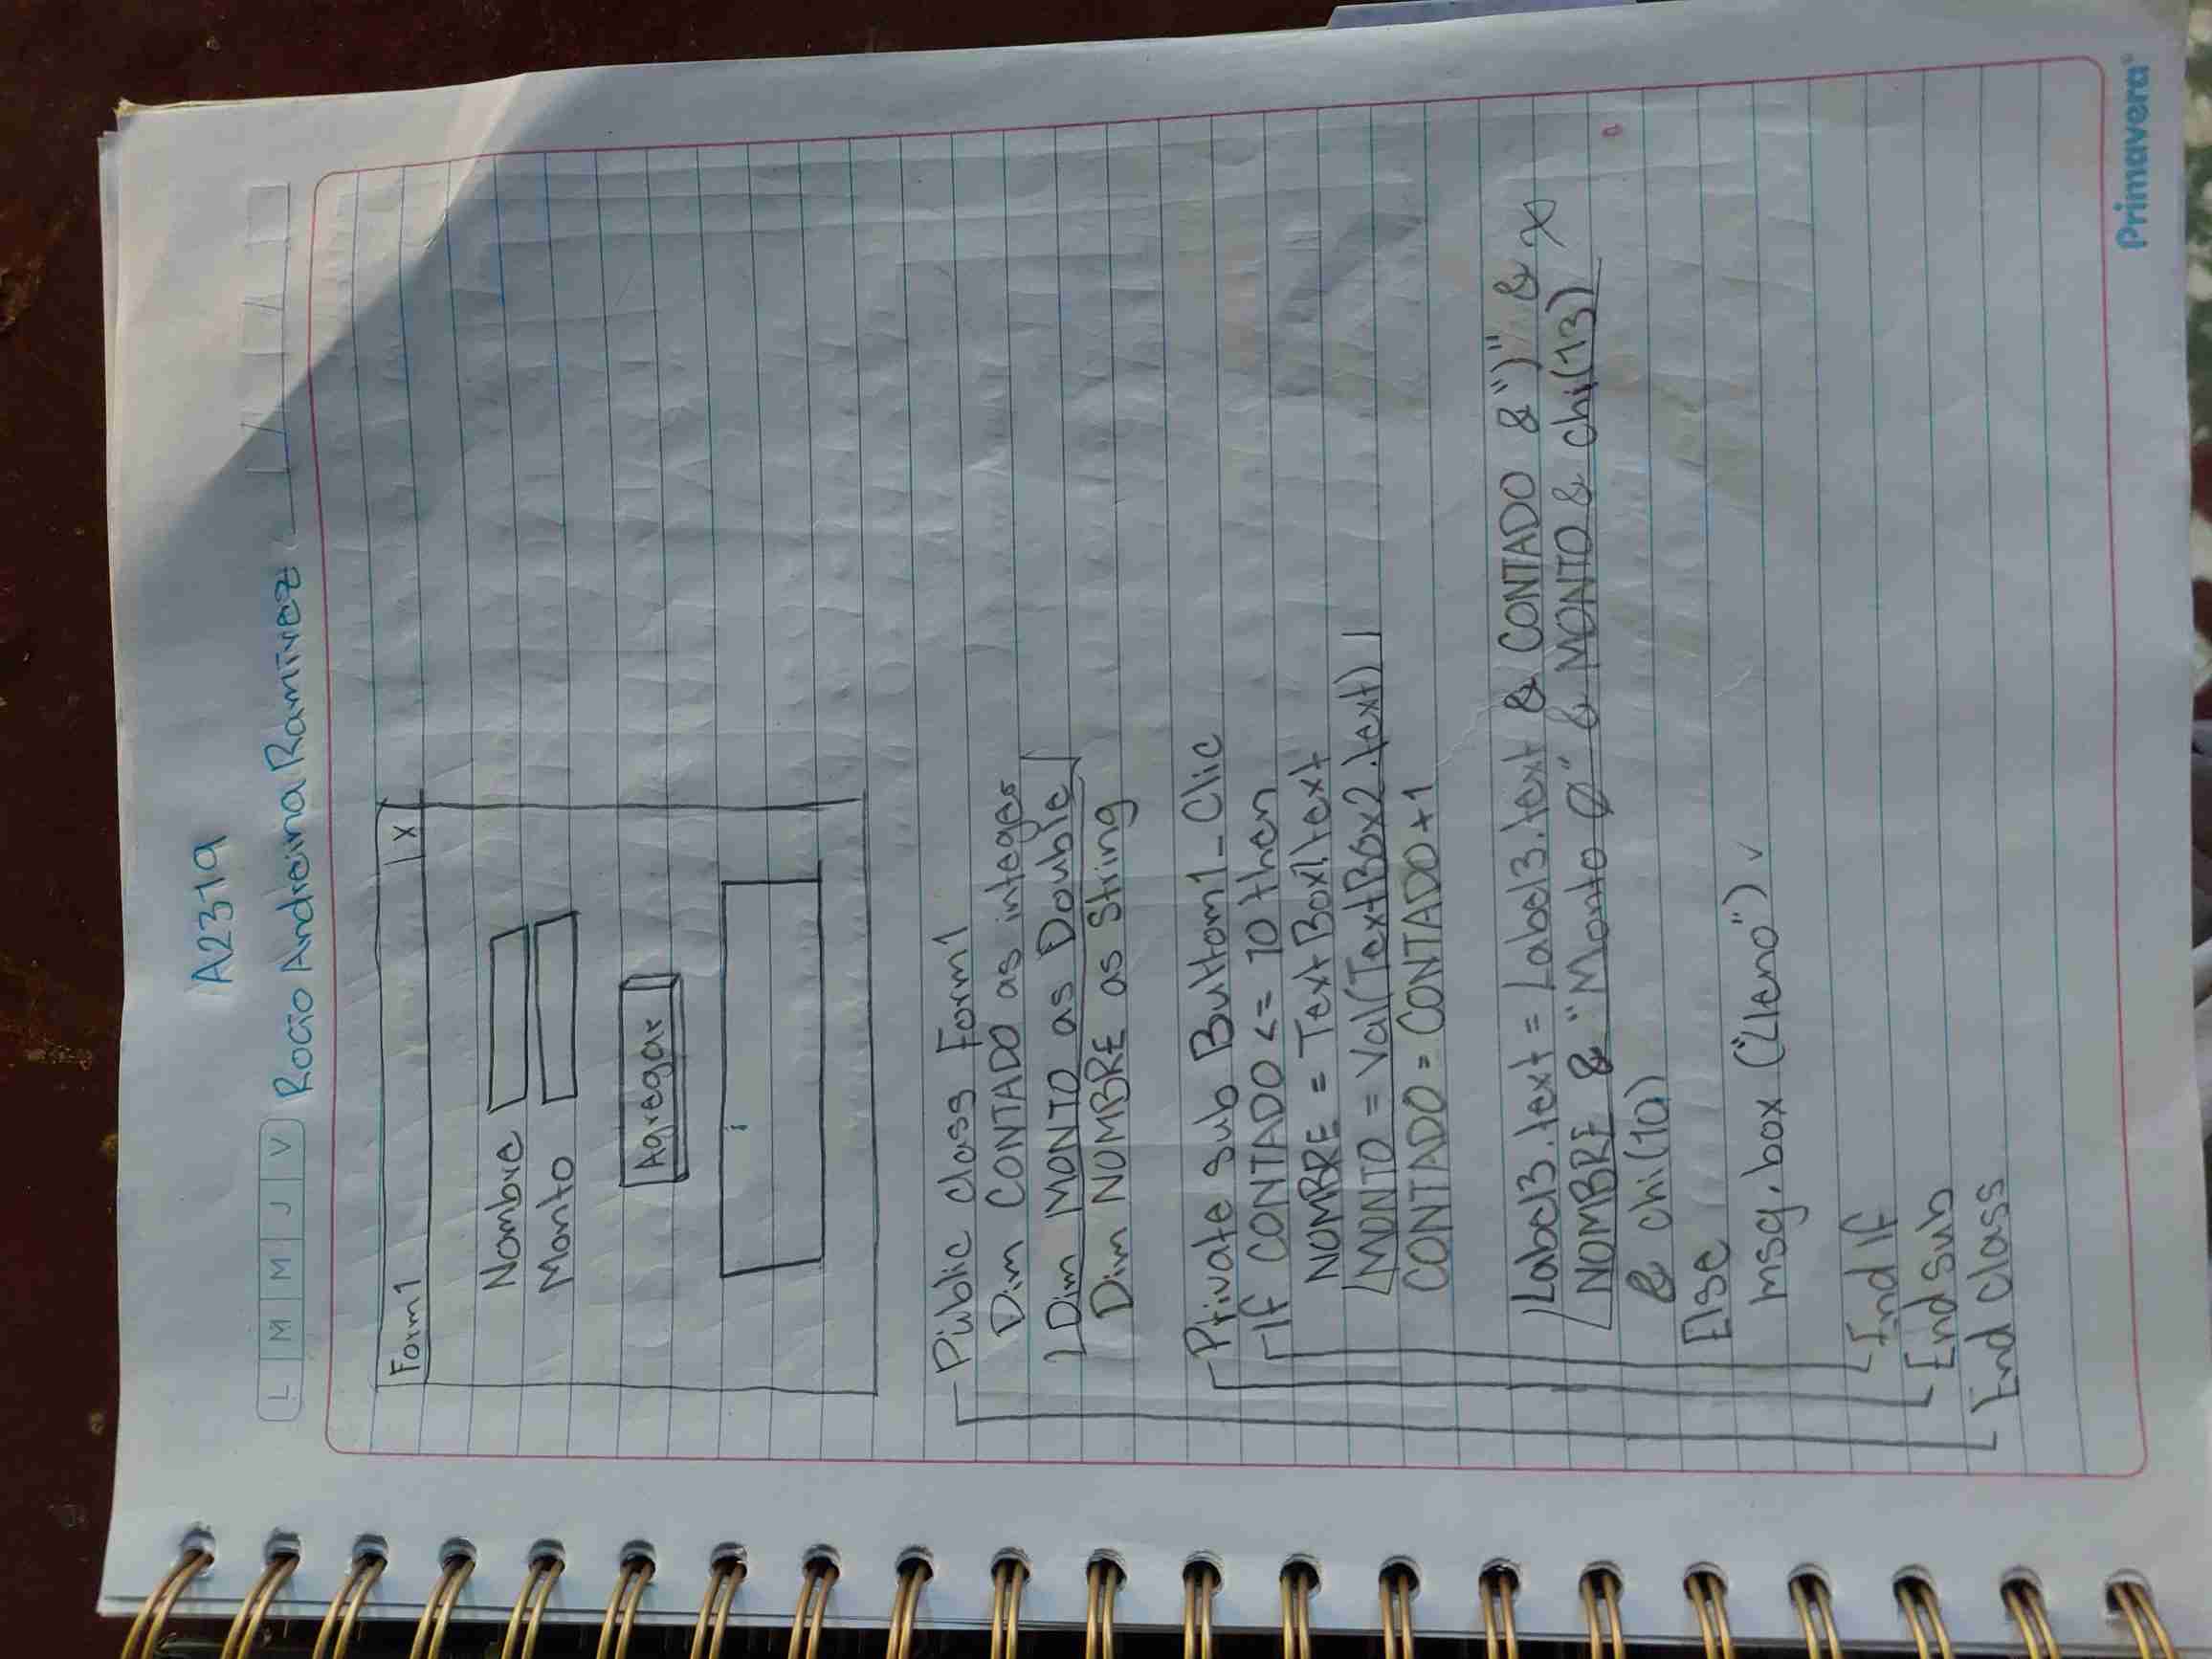 A2319
L M M J V Rocio Andreina Ramirez
Form1 X
Nombre
Monto
Agregar
Public class Form1
Dim CONTADO as integer
Dim MONTO as Double
Dim NOMBRE as String
Private sub Buttom1_Clic
If CONTADO <= 10 then
NOMBRE = TextBox1.text
MONTO = Val(TextBox2.text)
CONTADO = CONTADO +1
Label3.text = Label3.text & CONTADO &")" &
NOMBRE & "Monto Ø" & MONTO & chi(13)
& chi(10)
Else
msg.box ("Lleno")
End If
End sub
End class
Primavera